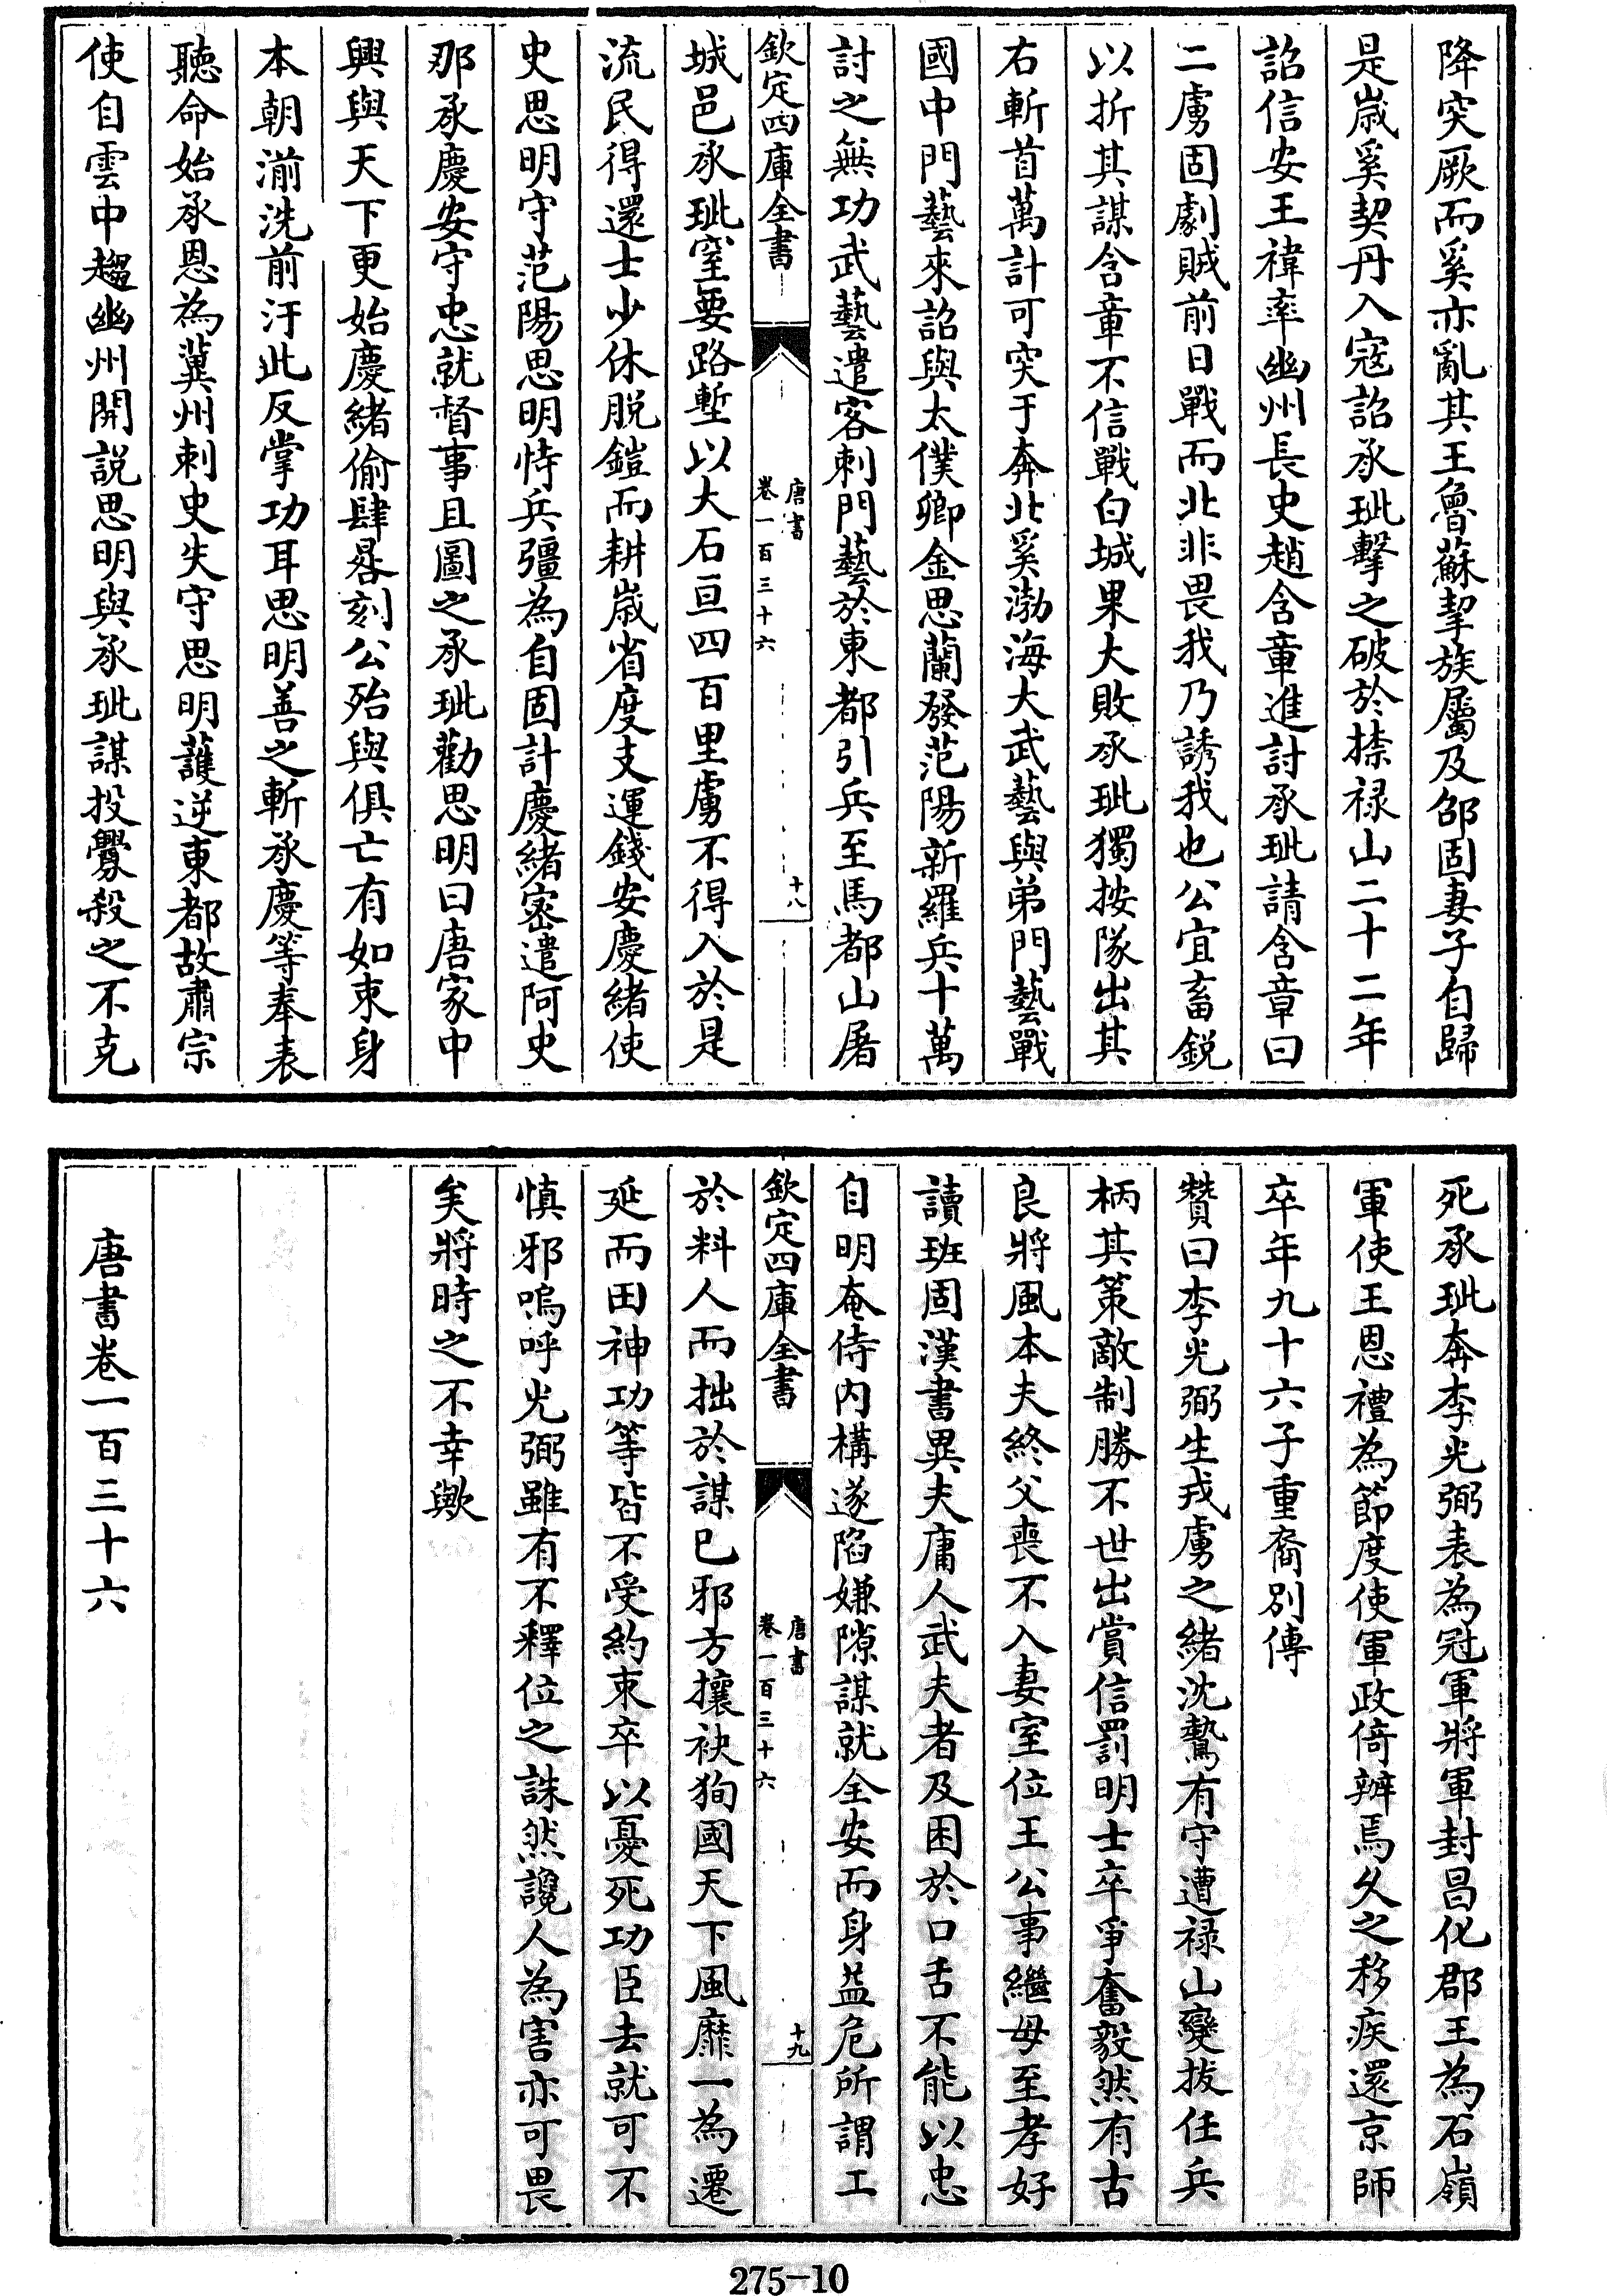 降突厥而奚亦亂其王魯蘇挈族屬及邵固妻子自歸
是歲奚契丹入寇詔承玼擊之破於捺禄山二十二年
詔信安王禕率幽州長史趙含章進討承玼請含章曰
二虜固劇賊前日戰而北非畏我乃誘我也公宜畜鋭
以折其謀含章不信戰白城果大敗承玼獨按隊出其
右斬首萬計可突于奔北奚渤海大武藝與弟門藝戰
國中門藝來詔與太僕卿金思蘭發范陽新羅兵十萬
討之無功武藝遣客刺門藝於東都引兵至馬都山屠
欽定四庫全書
唐書
卷一百三十六
十八
城邑承玼窒要路塹以大石亘四百里虜不得入於是
流民得還士少休脱鎧而耕歲省度支運錢安慶緒使
史思明守范陽思明恃兵彊為自固計慶緒密遣阿史
那承慶安守忠就督事且圖之承玼勸思明曰唐家中
興與天下更始慶緒偷肆晷刻公殆與俱亡有如束身
本朝湔洗前汙此反掌功耳思明善之斬承慶等奉表
聽命始承恩為冀州刺史失守思明護逆東都故肅宗
使自雲中趨幽州開説思明與承玼謀投釁殺之不克
死承玼奔李光弼表為冠軍將軍封昌化郡王為石嶺
軍使王思禮為節度使軍政倚辦焉久之移疾還京師
卒年九十六子重裔别傳
贊曰李光弼生戎虜之緒沈鷙有守遭禄山變拔任兵
柄其策敵制勝不世出賞信罰明士卒爭奮毅然有古
良將風本夫終父喪不入妻室位王公事繼母至孝好
讀班固漢書異夫庸人武夫者及困於口舌不能以忠
自明奄侍内構遂陷嫌隙謀就全安而身益危所謂工
欽定四庫全書
唐書
卷一百三十六
十九
於料人而拙於謀已邪方攘袂狥國天下風靡一為遷
延而田神功等皆不受約束卒以憂死功臣去就可不
慎邪嗚呼光弼雖有不釋位之誅然讒人為害亦可畏
矣將時之不幸歟
唐書卷一百三十六
275-10